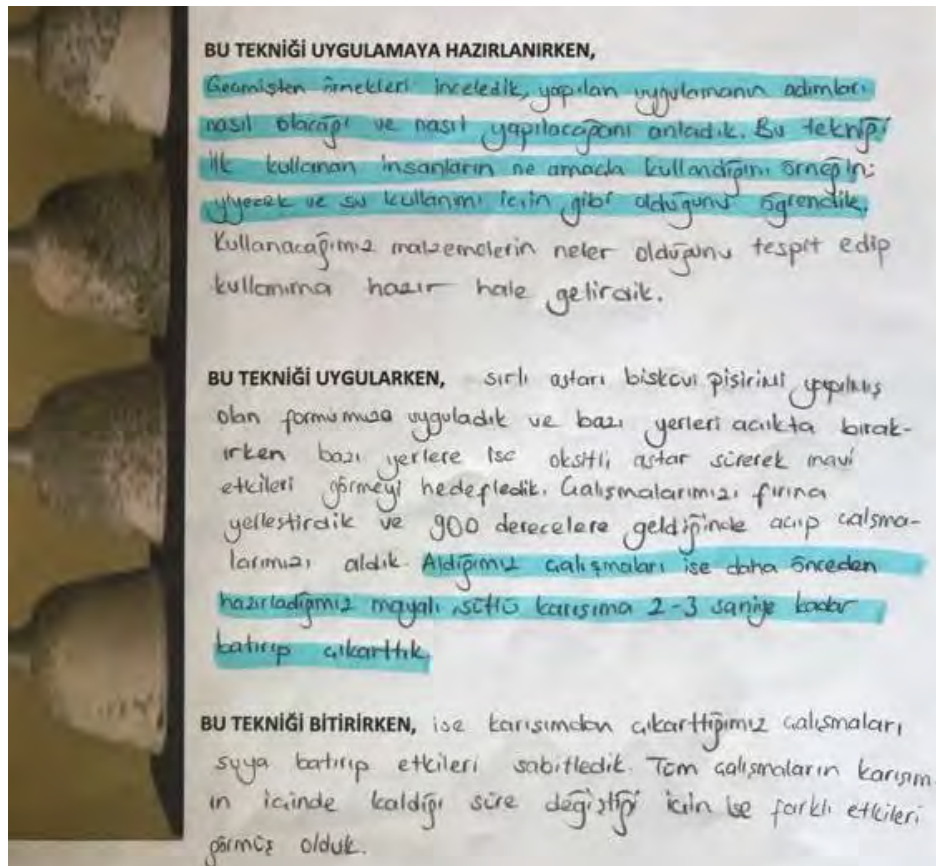 BU TEKNİĞİ UYGULAMAYA HAZIRLANIRKEN,
Geçmişten örnekleri inceledik, yapılan uygulamanın adımları
nasıl olacağı ve nasıl yapılacağını anladık. Bu tekniği
ilk kullanan insanların ne amaçla kullandığını örneğin:
yiyecek ve su kullanımı için gibi olduğunu öğrendik.
Kullanacağımız malzemelerin neler olduğunu tespit edip
kullanıma hazır hale getirdik.
BU TEKNİĞİ UYGULARKEN, sırlı astarı bisküvi pişirimi yapılmış
olan formumuza uyguladık ve bazı yerleri açıkta bırak-
ırken bazı yerlere ise oksitli astar sürerek mavi
etkileri görmeyi hedefledik. Çalışmalarımızı fırına
yelleştirdik ve 900 derecelere geldiğinde açıp çalşma-
larımızı aldık. Aldığımız çalışmaları ise daha önceden
hazırladığmız mayalı sütlü karışıma 2-3 saniye kadar
batırıp çıkarttık.
BU TEKNİĞİ BİTİRİRKEN, ise karışımdan çıkarttığımız çalışmaları
suya batırıp etkileri sabitledik. Tüm çalışmaların karışım
ın içinde kaldığı süre değiştiği için ise farklı etkileri
görmüş olduk.